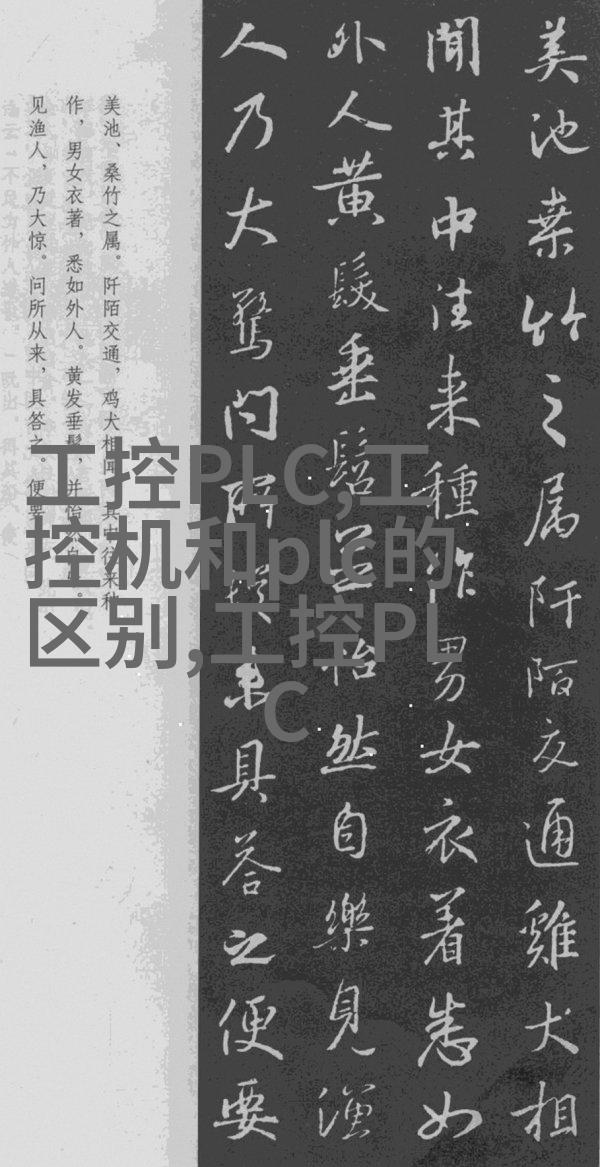 美池桒竹之属阡陌交通雞犬相
聞其中往来種作男女衣着悉如
外人黄髮垂髫並怡然自樂見漁
人乃大驚問所從来具答之便要
美池、桑竹之属。阡陌交通，鸡犬相闻。其中往来种
作，男女衣著，悉如外人。黄发垂髫，并怡然自乐。
见渔人，乃大惊。问所从来，具答之。便要
工控PLC,工
控机和plc的
区别,工控PL
C